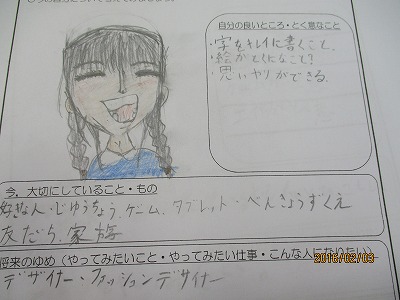 自分の良いところ・とく意なこと
・字をキレイに書くこと.
・絵がとくいなこと!
・思いやりができる.
今、大切にしていること・もの
好きな人・じゆうちょう、ゲーム、タブレット・べんきょうずくえ
友だち、家族
将来のゆめ(やってみたいこと・やってみたい仕事・こんな人になりたい)
デザイナー・ファッションデザイナー
2016/02/03